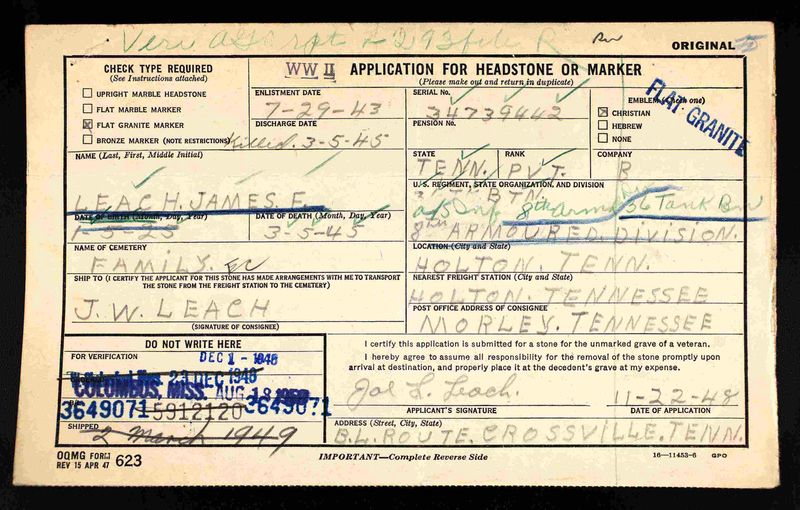 ORIGINAL
CHECK TYPE REQUIRED
(See Instructions attached)
UPRIGHT MARBLE HEADSTONE
FLAT MARBLE MARKER
FLAT GRANITE MARKER
BRONZE MARKER (NOTE RESTRICTIONS)
WW II APPLICATION FOR HEADSTONE OR MARKER
(Please make out and return in duplicate)
ENLISTMENT DATE
7-29-43
DISCHARGE DATE
Killed 3-5-45
SERIAL No.
34739442
PENSION No.
EMBLEM (Check one)
CHRISTIAN
HEBREW
NONE
FLAT GRANITE
NAME (Last, First, Middle Initial)
LEACH. JAMES. E.
STATE
TENN.
RANK
PVT.
COMPANY
B
U.S. REGIMENT, STATE ORGANIZATION, AND DIVISION
36 Tank Bn
8th ARMOURED. DIVISION.
DATE OF BIRTH (Month, Day, Year)
1-5-25
DATE OF DEATH (Month, Day, Year)
3-5-45
NAME OF CEMETERY
FAMILY
LOCATION (City and State)
HOLTON. TENN.
SHIP TO (I CERTIFY THE APPLICANT FOR THIS STONE HAS MADE ARRANGEMENTS WITH ME TO TRANSPORT
THE STONE FROM THE FREIGHT STATION TO THE CEMETERY)
J. W. LEACH
(SIGNATURE OF CONSIGNEE)
NEAREST FREIGHT STATION (City and State)
HOLTON. TENNESSEE
POST OFFICE ADDRESS OF CONSIGNEE
MORLEY. TENNESSEE
DO NOT WRITE HERE
FOR VERIFICATION
DEC 1 - 1948
23 DEC 1948
COLUMBUS, MISS. AUG 18 1950
3649071 5912120 3649071
SHIPPED
2 March 1949
I certify this application is submitted for a stone for the unmarked grave of a veteran.
I hereby agree to assume all responsibility for the removal of the stone promptly upon
arrival at destination, and properly place it at the decedent's grave at my expense.
Joe L. Leach.
11-22-48
APPLICANT'S SIGNATURE
DATE OF APPLICATION
ADDRESS (Street, City, State)
B.L. ROUTE. CROSSVILLE. TENN.
OQMG FORM
REV 15 APR 47 623
IMPORTANT—Complete Reverse Side
16—11453-6 GPO